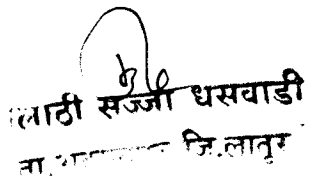 तलाठी सज्जा धसवाडी
ता. जि.लातूर